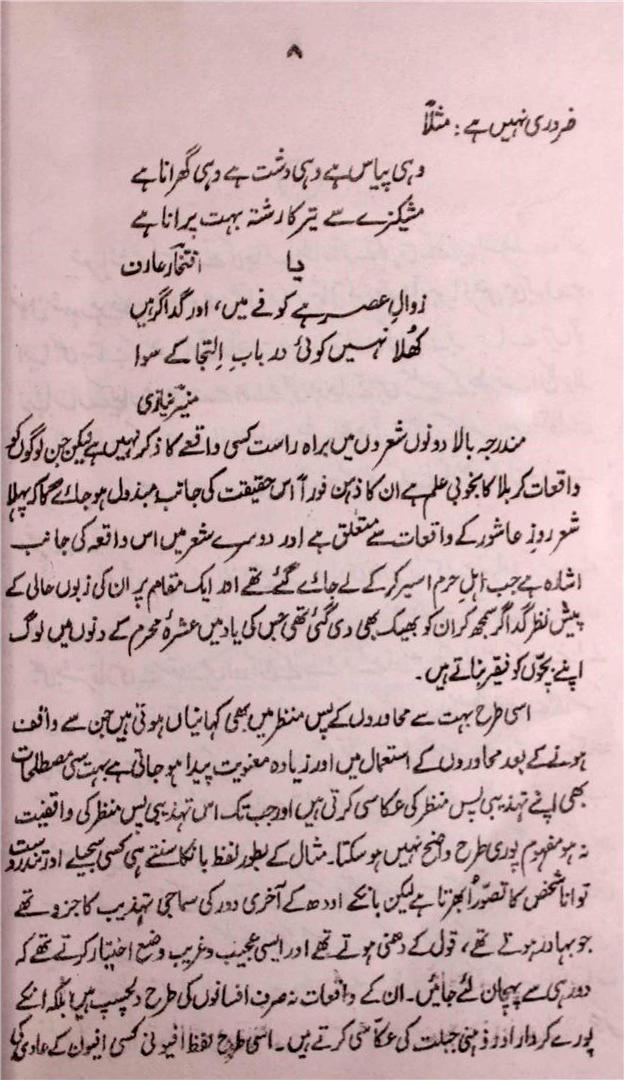 ۸
ضروری نہیں ہے: مثلاً
وہی پیاس ہے وہی دشت ہے وہی گھرانا ہے
مشکیزے سے تیر کا رشتہ بہت پرانا ہے
یا افتخار عارف
زوالِ عصر ہے کوفے میں، اور گداگر ہیں
کھُلا نہیں کوئی در بابِ اِلتجا کے سوا
منیر نیازی
مندرجہ بالا دونوں شعروں میں براہ راست کسی واقعے کا ذکر نہیں ہے لیکن جن لوگوں کو
واقعات کربلا کا بخوبی علم ہے ان کا ذہن فوراً اس حقیقت کی جانب مبذول ہو جائے گا کہ پہلا
شعر روزِ عاشور کے واقعات سے متعلق ہے اور دوسرے شعر میں اس واقعہ کی جانب
اشارہ ہے جب اہلِ حرم اسیر کرکے لے جائے گئے تھے اور ایک مقام پر ان کی زبوں حالی کے
پیش نظر گداگر سمجھ کر ان کو بھیک بھی دی گئی تھی جس کی یاد میں عشرۂ محرم کے دنوں میں لوگ
اپنے بچّوں کو فقیر بناتے ہیں۔
اسی طرح بہت سے محاوروں کے پس منظر میں بھی کہانیاں ہوتی ہیں جن سے واقف
ہونے کے بعد محاوروں کے استعمال میں اور زیادہ معنویت پیدا ہو جاتی ہے بہت سی مصطلحات
بھی اپنے تہذیبی پس منظر کی عکاسی کرتی ہیں اور جب تک اس تہذیبی پس منظر کی واقفیت
نہ ہو مفہوم پوری طرح واضح نہیں ہو سکتا۔ مثال کے بطور لفظ بانکا سنتے ہی کسی سجیلے اور تندرست
توانا شخص کا تصوّر اُبھرتا ہے لیکن بانکے اودھ کے آخری دور کی سماجی تہذیب کا جزو تھے
جو بہادر ہوتے تھے، قول کے دھنی ہوتے تھے اور ایسی عجیب و غریب وضع اختیار کرتے تھے کہ
دور ہی سے پہچان لئے جائیں۔ ان کے واقعات نہ صرف افسانوں کی طرح دلچسپ ہیں بلکہ انکے
پورے کردار اور ذہنی جبلت کی عکاسی کرتے ہیں۔ اسی طرح لفظ افیونی کسی افیون کے عادی کا